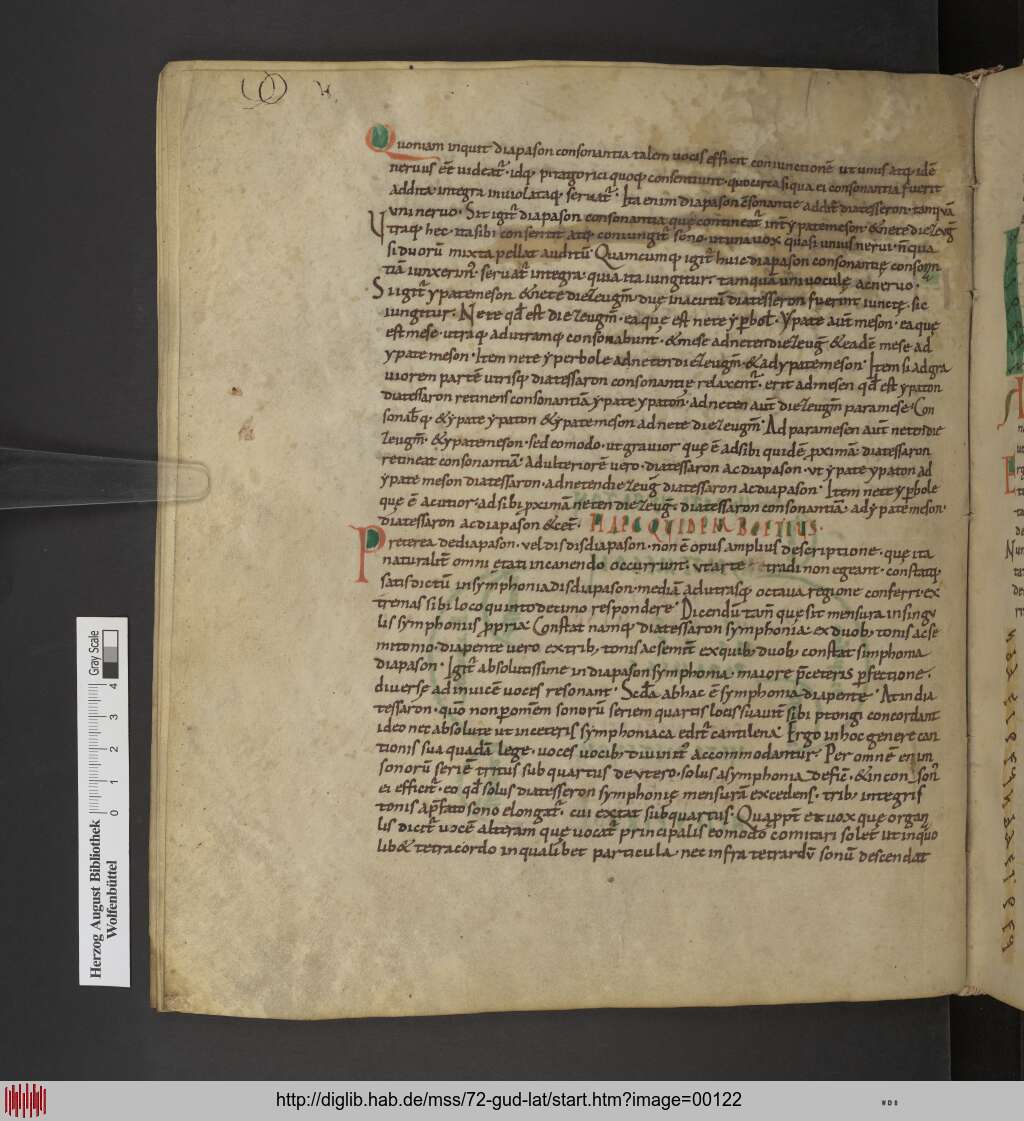 Quoniam inquit diapason consonantia talem uocis efficit coniunctionē ut unus atq; idē
neruus eē uideat᷑. idq; pitagorici quoq; consentiunt. quocirca siqua ei consonantia fuerit
addita integra inuiolataq; seruat᷑. Ita enim diapason cōsonantię addit̄ diatesseron. tamquā
uni neruo. Sit igit᷑ diapason consonantia quę contineat᷑ int̄ ypatemeson. & nete diezeugm̄
Vtraq; hec. ita sibi consentit atq; coniungit᷑ sono. ut una uox quasi unius nerui. n̄ qua
si duorū mixta pellat auditū. Quamcumq; igit᷑ huic diapason consonantię conson
tiā iunxerim᷒. seruat᷑ integra. quia ita iungitur. tamquā uni uoculę ac neruo.
Si igit᷑ ypatemeson & nete diezeugm̄ duę in acutū diatesseron fuerint iunctę. sic
iungitur. Nete qd̄ est diezeugm̄. ea quę est nete yp̄bol. Ypate aut̄ meson. ea quę
est mese. utraq; ad utramq; consonabunt. & mese ad neten diezeuḡ & eadē mese ad
ypate meson. Item nete yperbole ad neten diezeugm̄. & ad ypatemeson. Item si ad gra
uiorem partē utrisq; diatessaron consonantię relaxent᷑. erit ad mesen qd̄ est ypaton
diatessaron retinens consonantiā ypate ypaton. ad neten aut̄ diezeugm̄ paramese. Con
sonab̄q. & ypate ypaton & ypate meson ad nete diezeugm̄. Ad paramesen aut̄ neten die
zeugm̄. & ypatemeson. sed eo modo. ut grauior quę ē ad sibi quidē p̱ximā. diatessaron
retineat consonantiā. ad ulteriorē uero. diatessaron ac diapason. ut ypate ypaton ad
ypate meson diatessaron. ad neten diezeuḡ diatessaron ac diapason. Item nete yp̱bole
quę ē acutior. ad sibi p̱ximā neten diezeuḡ. diatessaron consonantiā. ad ypatemeson.
diatessaron ac diapason & cet̄. HAEC QUIDEM BOETIUS.
Preterea de diapason. uel disdiapason. non ē opus amplius descriptione. quę ita
naturalit̄ omni ętati in canendo occurrunt. ut arte tradi non egeant. constatq;
satis dictū in symphonia disdiapason. mediā ad utrasq; octaua regione conferri. ex
tremas sibi loco quinto decimo respondere. Dicendū tam̄ quę sit mensura in singu
lis symphoniis propria. Constat namq; diatessaron symphonia. ex duob; tonis ac se
mitonio. diapente uero ex trib; tonis ac semit̄ ex quib; duob; constat simphonia
diapason. Igit᷑ absolutissime in diapason symphonia. maiore p̄ceteris p̱fectione.
diuersę ad inuicē uoces resonant. Scd̄a ab hac ē symphonia diapente. At in dia
tessaron. quō non p̱ omēm sonorū seriem quartis locis suauit̄ sibi ptongi concordant
ideo nec absolute ut in ceteris symphoniaca edit᷑ cantilena. Ergo in hoc genere can
tionis sua quadā lege. uoces uocib; diuinit᷒ accommodantur. Per omnē enim
sonorū seriē tritus subquartus deutero. solus a symphonia defic̄. & incon son᷒
ei efficit᷑. eo qd̄ solus diatesseron symphonię mensurā excedens. trib; integris
tonis a p̄fato sono elongat᷑. cui extat subquartus. Quappt̄ et uox quę organ
lis dicit᷑ uocē alteram quę uocat᷑ principalis eo modo comitari solet ut in quo
lib& tetracordo in qualibet particula. nec infra tetrardū sonū descendat
Herzog August Bibliothek
Wolfenbüttel
0 1 2 3 4
Gray Scale
http://diglib.hab.de/mss/72-gud-lat/start.htm?image=00122